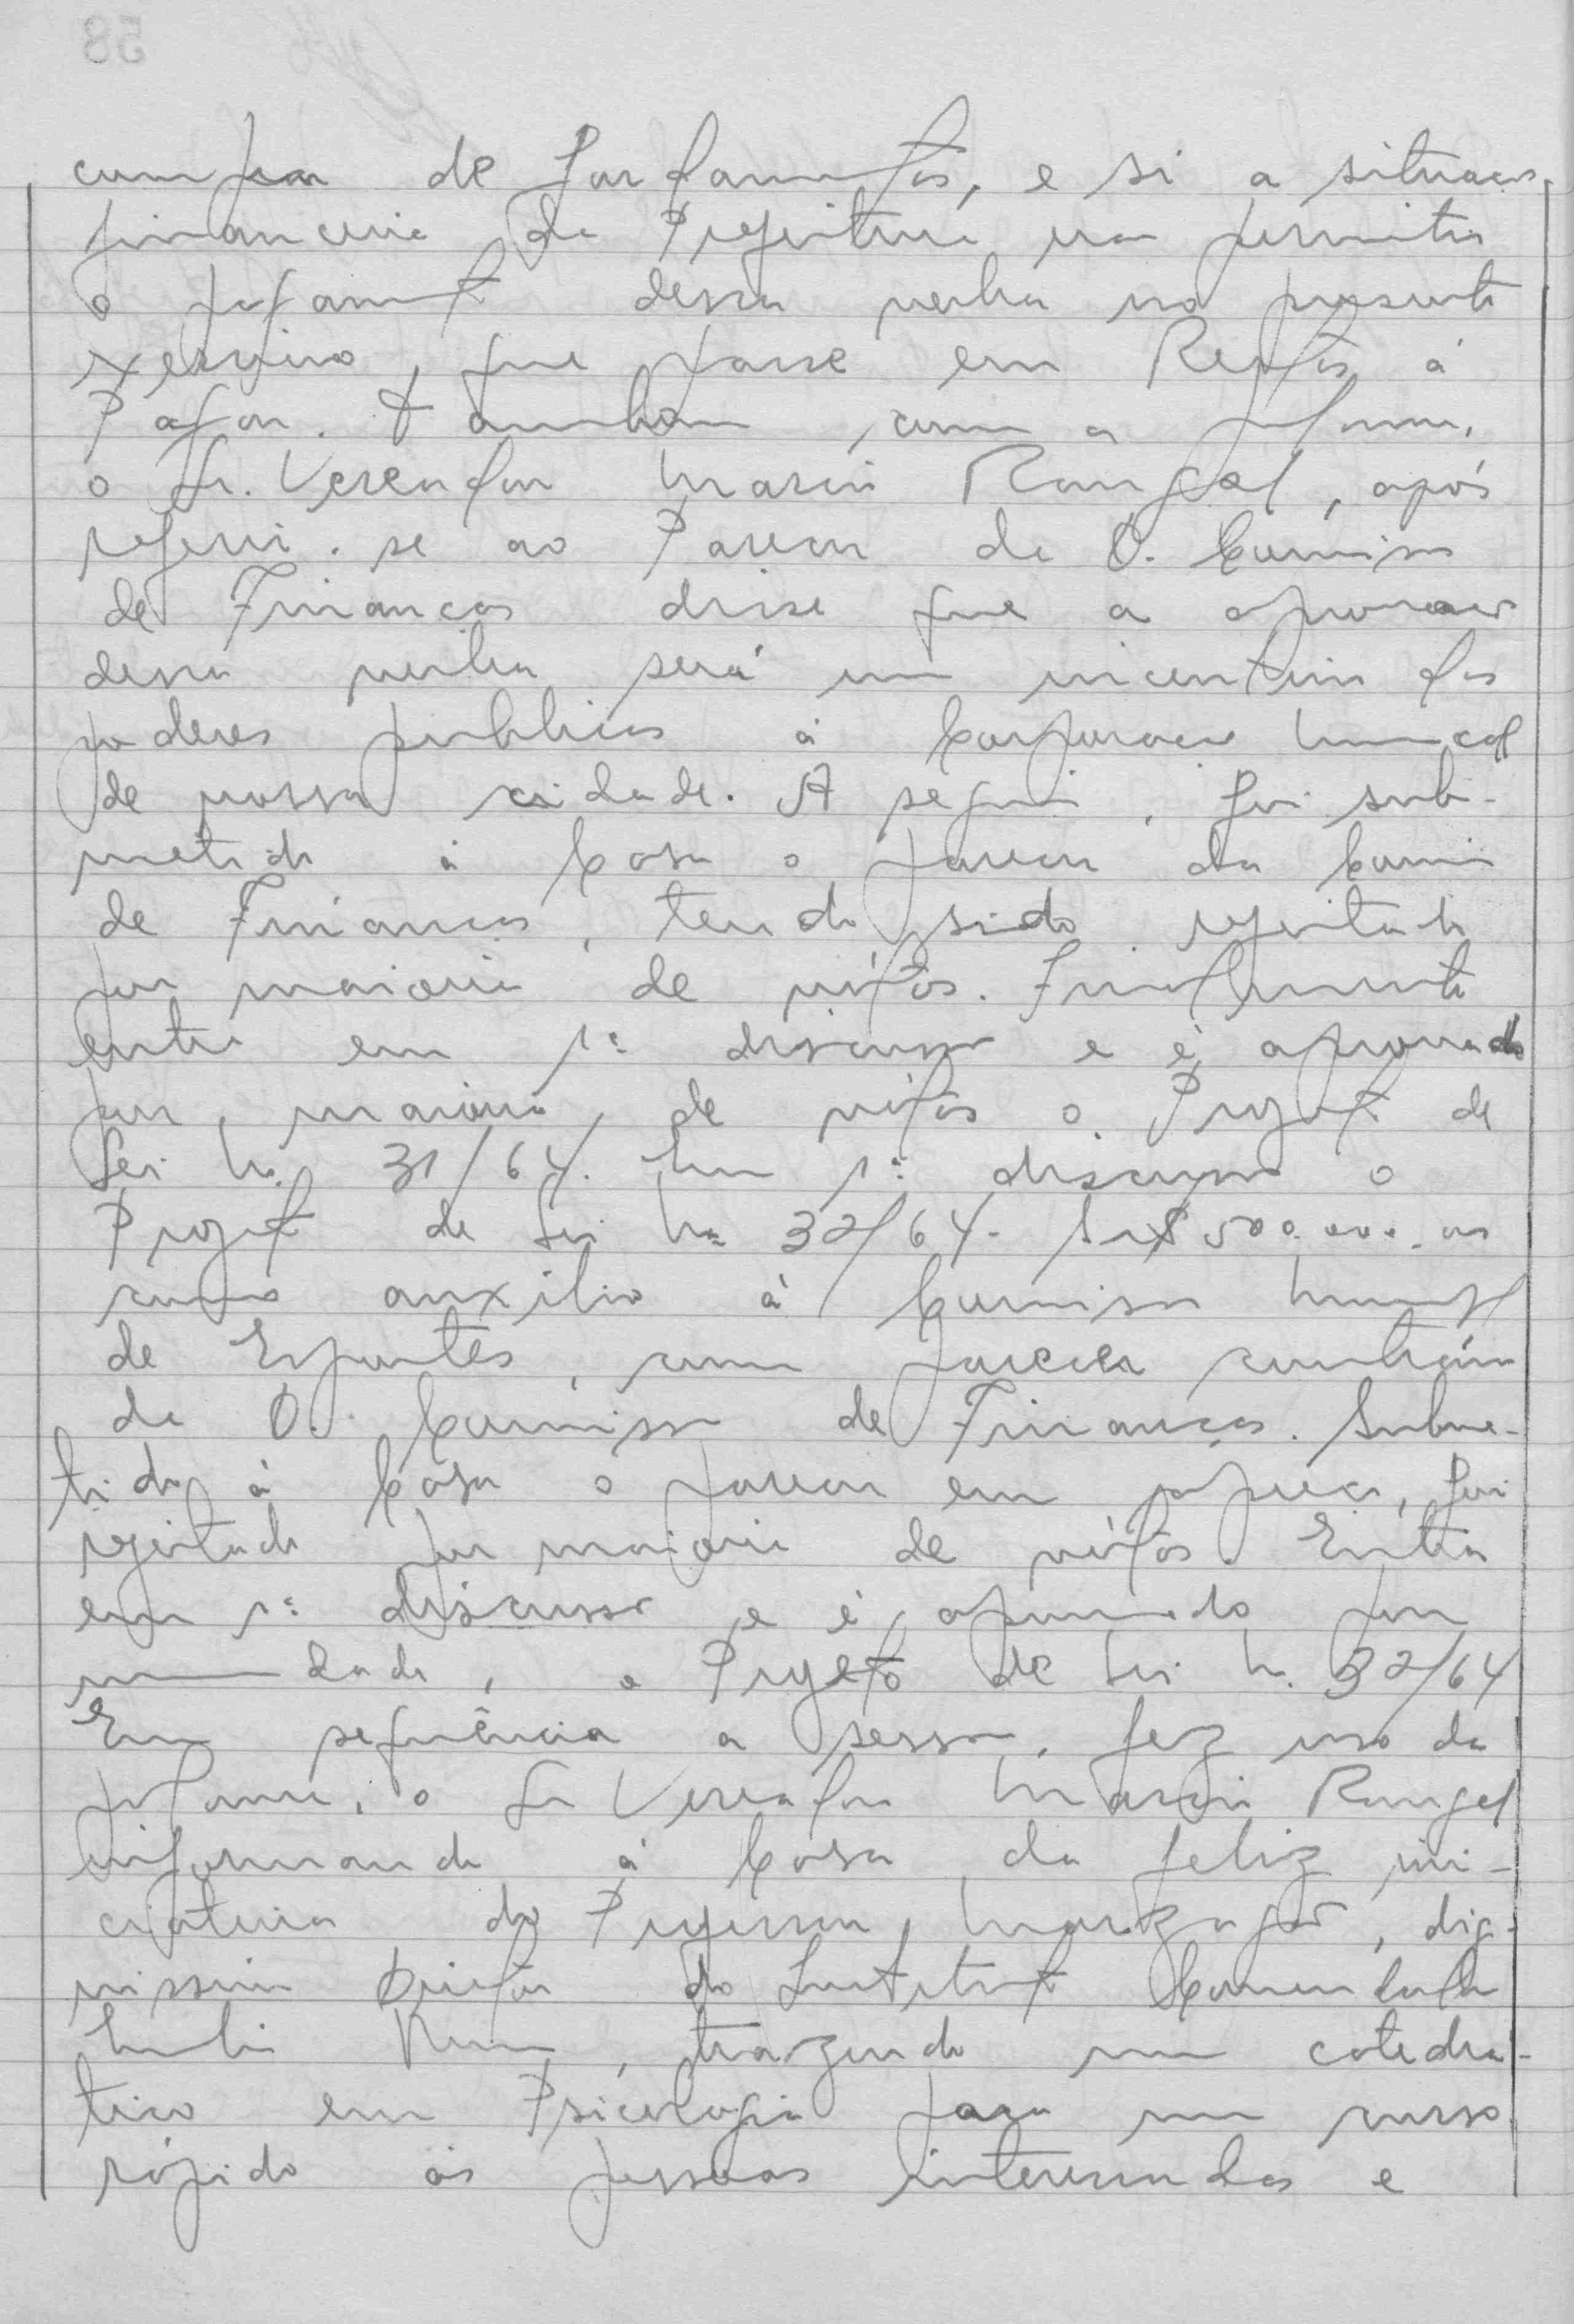 compra de fardamentos, e si a situação
financeira da Prefeitura não permitir
o pagamento dessa verba no presente
exercicio, que passe em Restos á
Pagar. Tambem, com a palavra,
o Sr. Vereador Mario Rangel, após
referir-se ao Parecer da D. Comissão
de Finanças disse que a aprovação
dessa verba será um incentivo dos
poderes publicos á Corporação Musical
de nossa cidade. A seguir, foi sub-
metido á Casa o parecer da Comissão
de Finanças, tendo sido rejeitado
por maioria de vótos. Finalmente
entra em 1ª discussão e é aprovado
por maioria de vótos o Projeto de
Lei Nº 31/64. Em 1ª discussão o
Projeto de Lei Nº 32/64 - Cr$ 500.000,00
como auxilio á Comissão Municipal
de Esportes, com parecer contrário
da D. Comissão de Finanças. Subme-
tido á Casa o parecer em apreço, foi
rejeitado por maioria de vótos. Entra
em 1ª discussão e é aprovado por
unanimidade, o Projeto de Lei N. 32/64
Em sequência a sessão, fez uso da
palavra, o Sr Vereador Mario Rangel
informando á Casa da feliz ini-
ciativa do Professor, dig-
nissimo Diretor do Instituto Comendador
trazendo um catedrá-
tico em Psicologia para um curso
rápido ás pessoas interessadas e